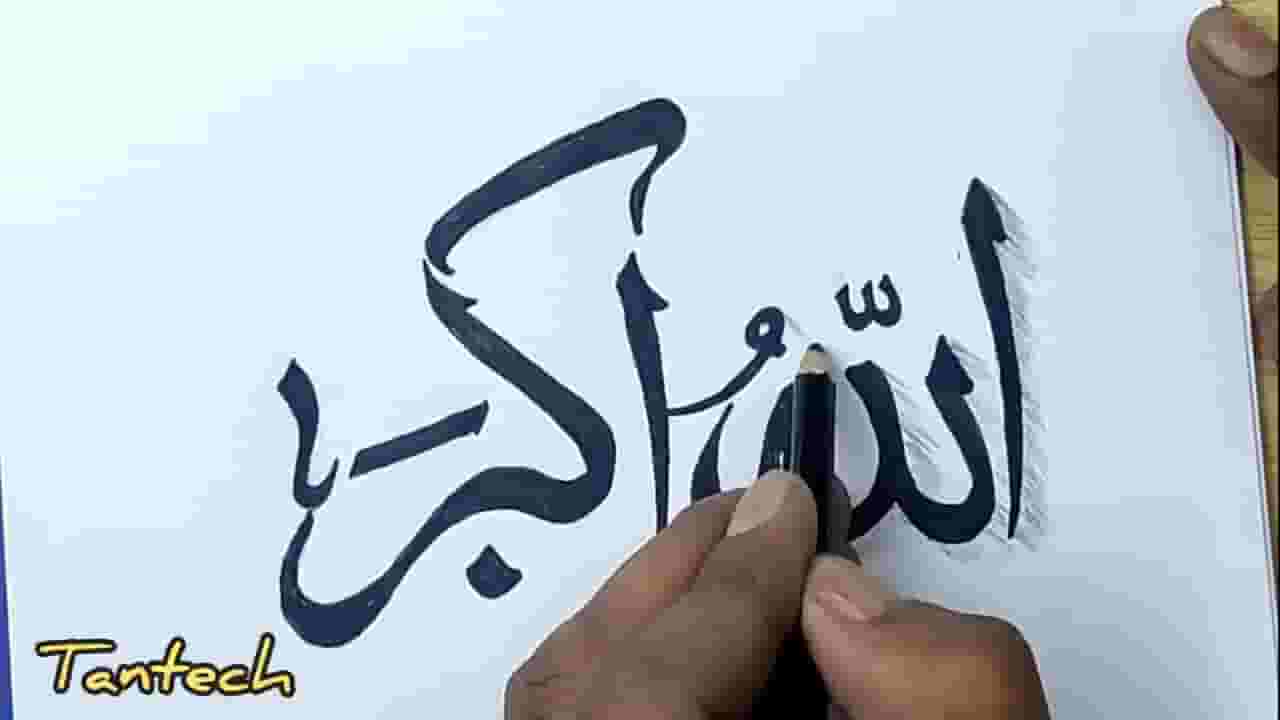 اللّٰهُ اكبَر
Tantech